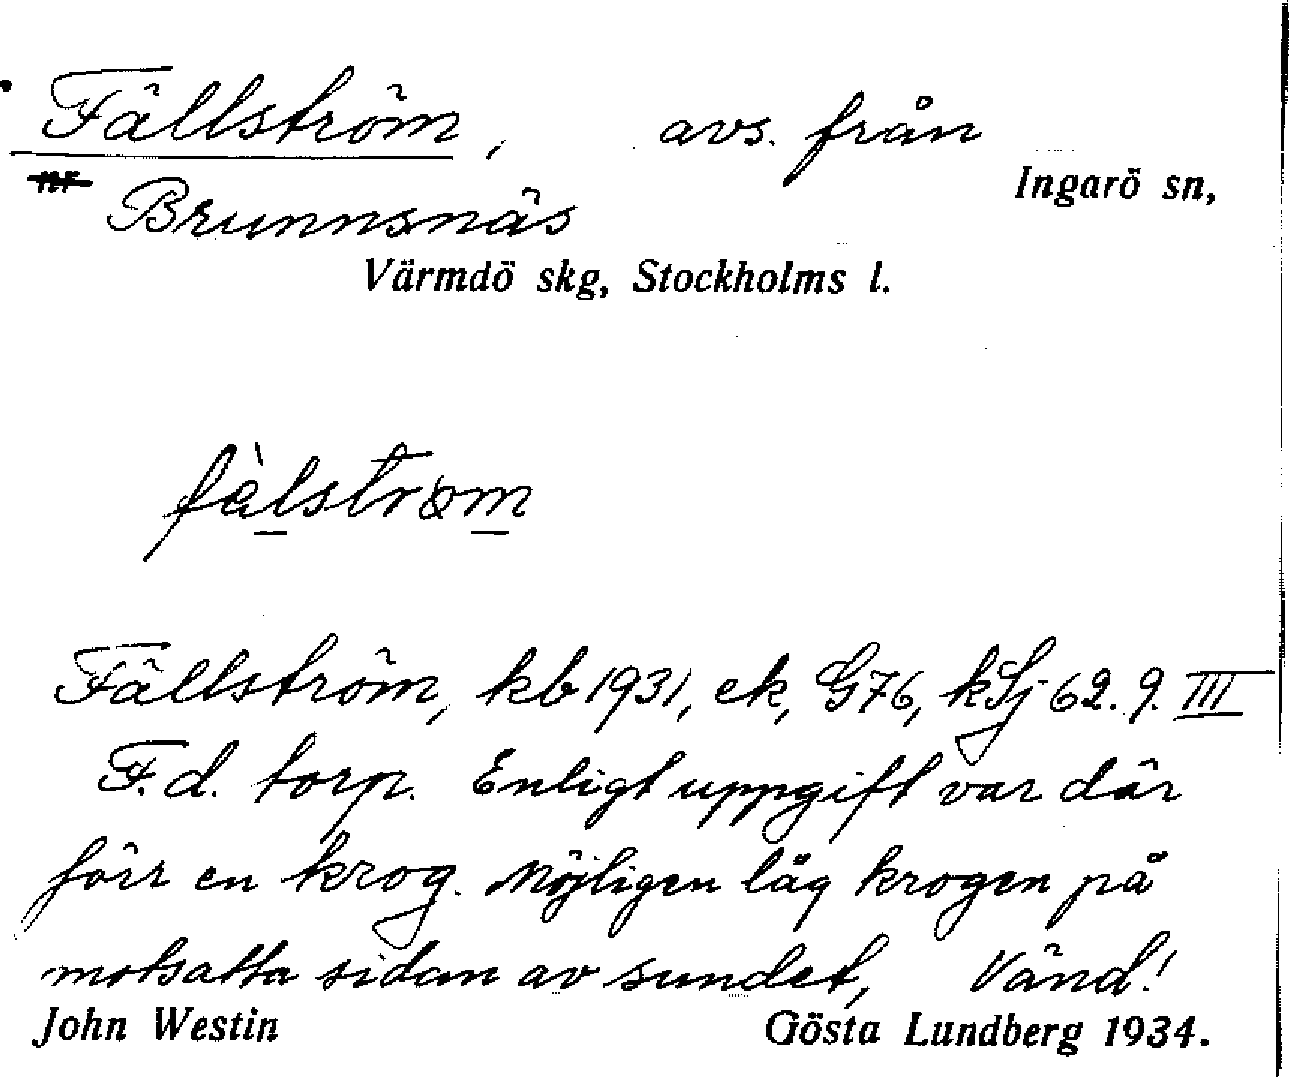 Fällström, avs. från
Ingarö sn,
Brunnsnäs
Värmdö skg, Stockholms l.
fὲlstrøm
Fällström, kb 1931, ek, G76, kSj 62. 9. III
F.d. torp. Enligt uppgift var där
förr en krog. Möjligen låg krogen på
motsatta sidan av sundet, Vänd!
John Westin Gösta Lundberg 1934.